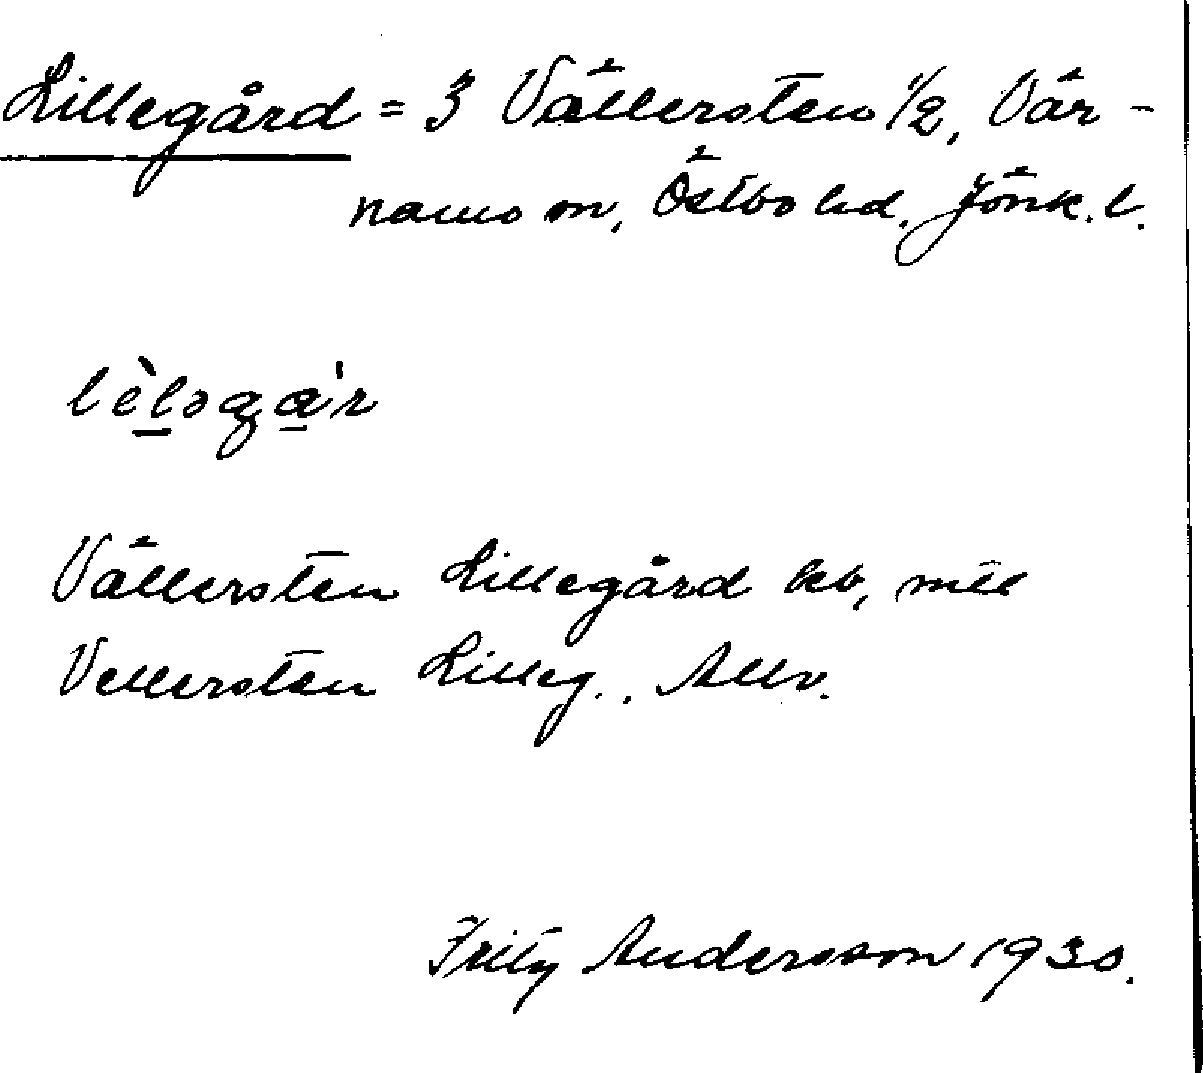 Lillegård = 3 Vällersten 1/2, Vär-
namo sn, Östbo hd. Jönk. l.
lèləga'r
Vällersten Lillegård kb, mtl
Vellersten Lilleg., Allv.
Fritz Andersson 1930.